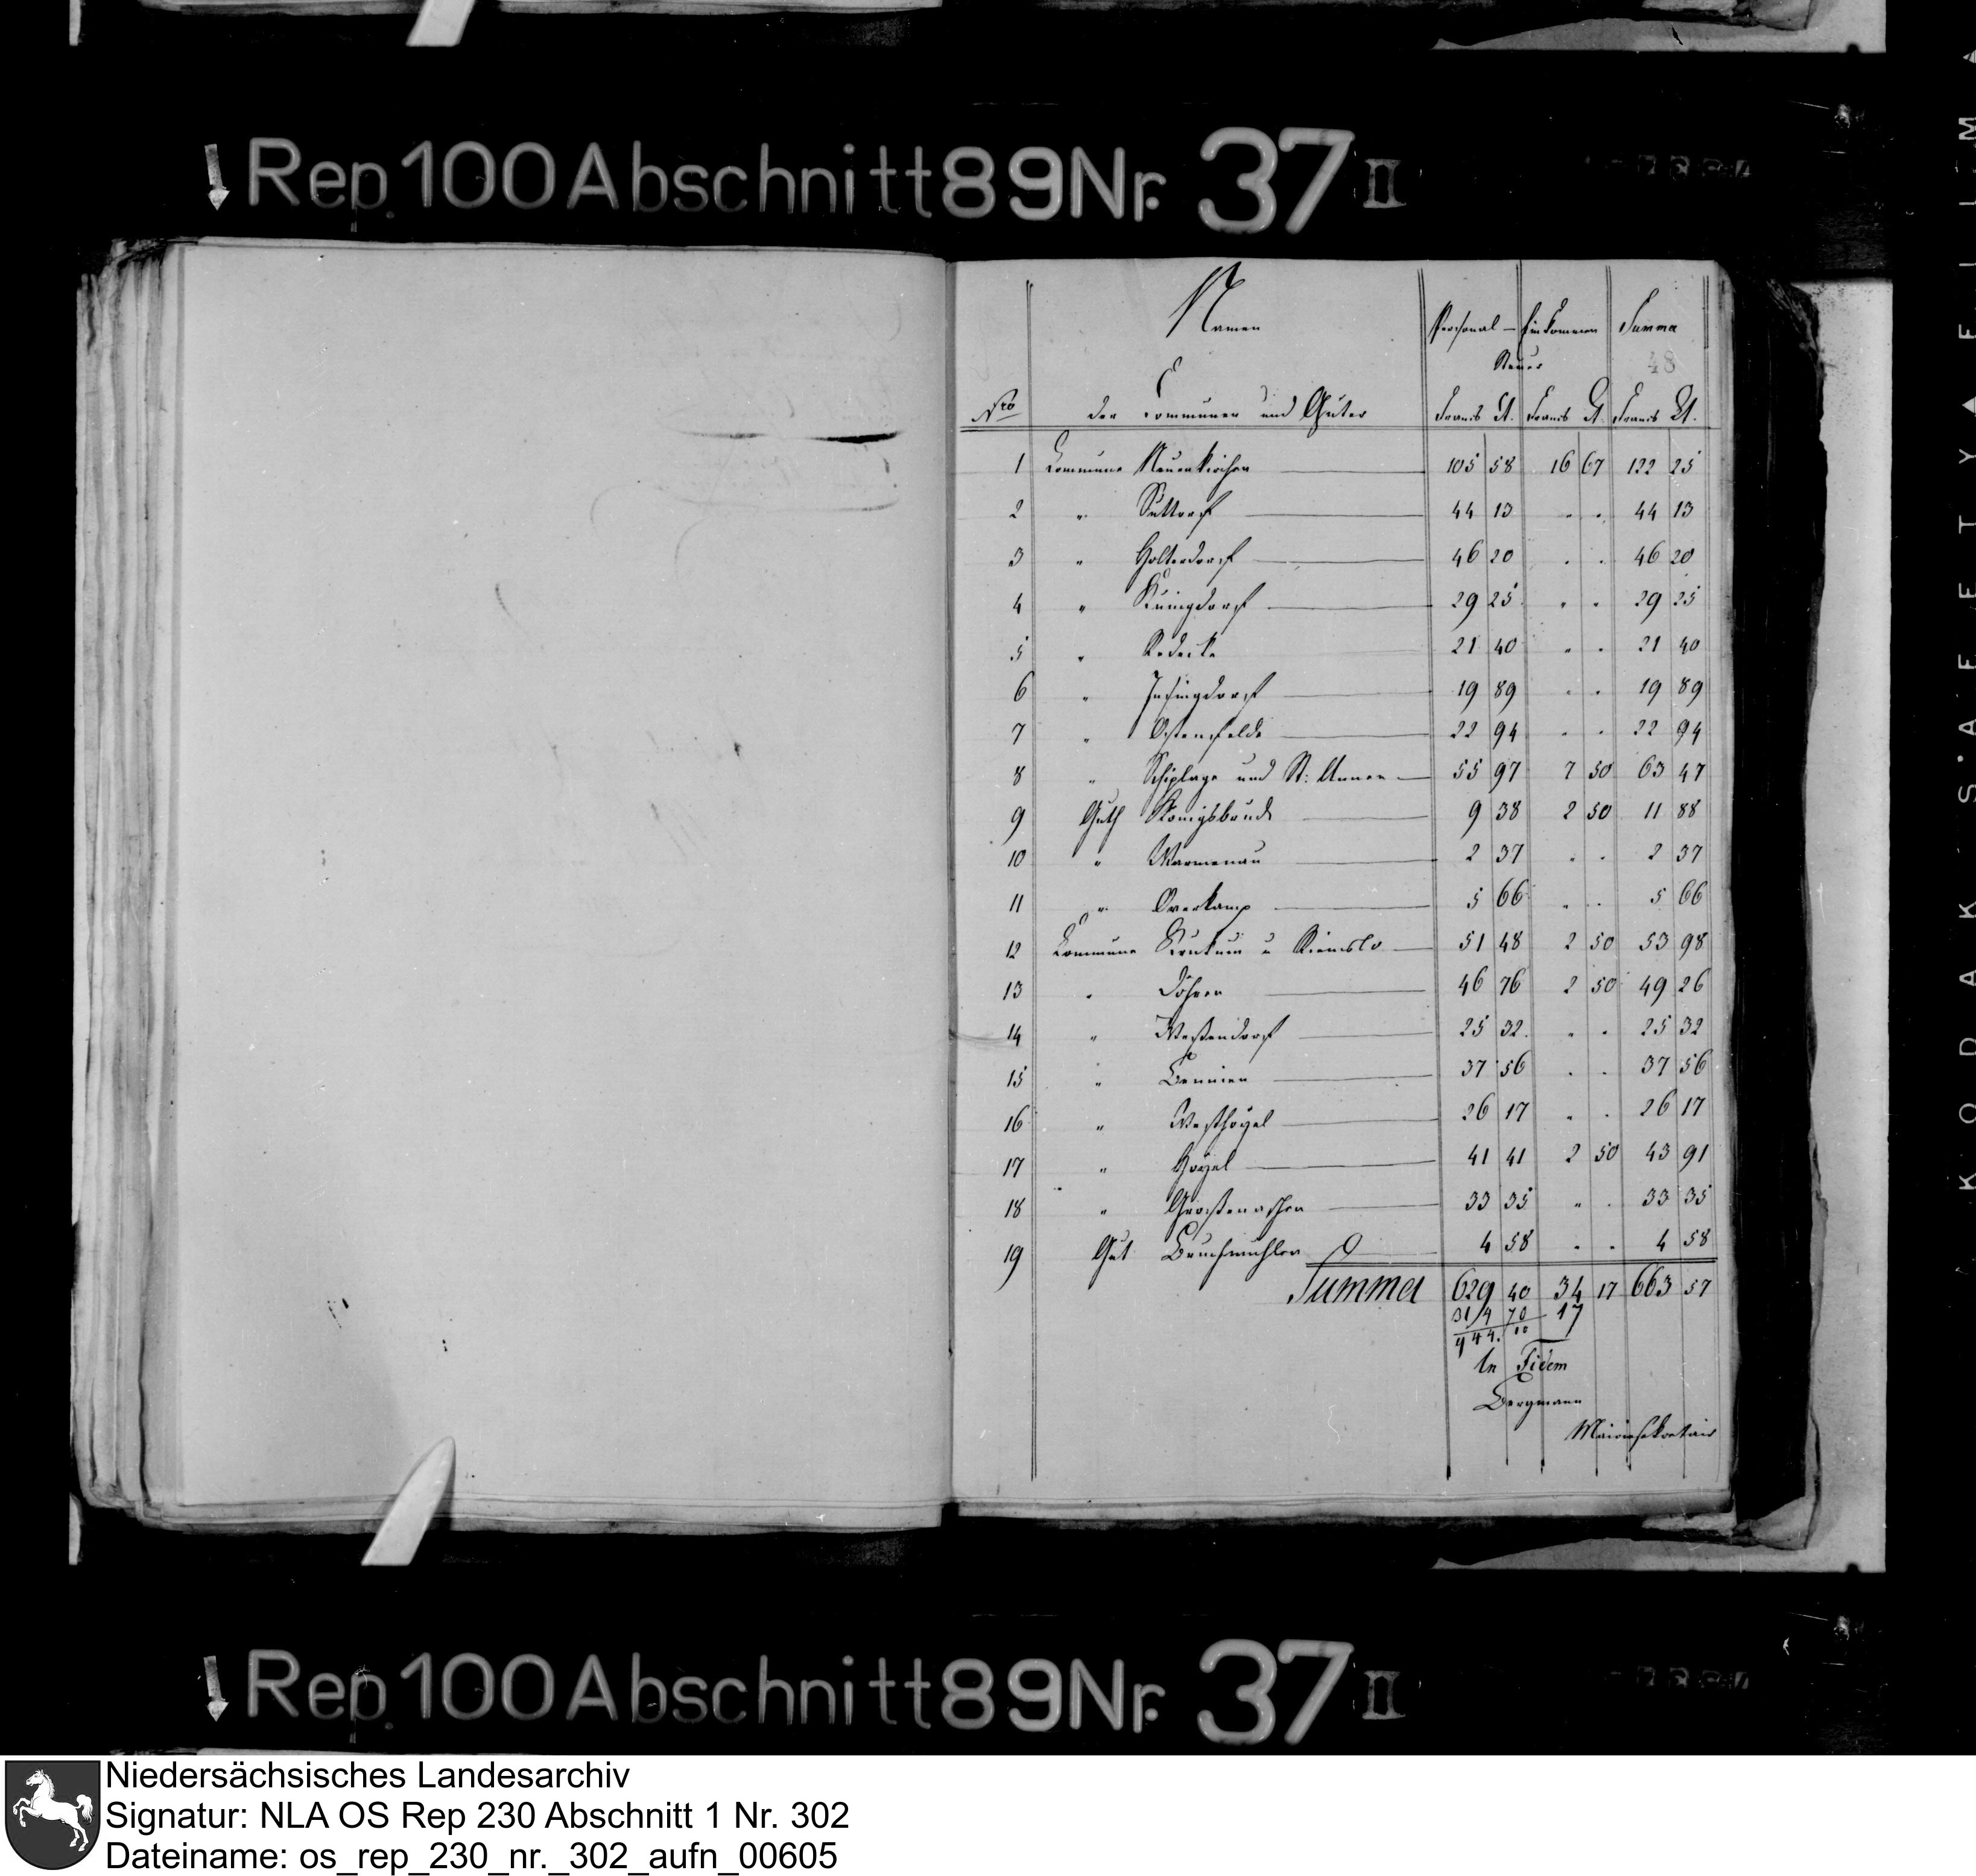 Rep. 100 Abschnitt 89 Nr. 37 II
Namen Personal – Einkommen Summa
Steuer 48
Nro der Communen und Güter Francs Ct. Francs Ct. Francs Ct.
1 Commune Neuenkirchen 105 58 16 67 122 25
2 " Suttorf 44 13 " " 44 13
3 " Holterdorf 46 20 " " 46 20
4 " Küingdorf 29 25 " " 29 25
5 " Redecke 21 40 " " 21 40
6 " Insingdorf 19 89 " " 19 89
7 " Ostenfelde 22 94 " " 22 94
8 " Schiplage und St: Annen 55 97 7 50 63 47
9 Guth Königsbrück 9 38 2 50 11 88
10 " Warmenau 2 37 " " 2 37
11 " Overkamp 5 66 " " 5 66
12 Commune Krukum u Riemslo 51 48 2 50 53 98
13 " Döhren 46 76 2 50 49 26
14 " Westendorf 25 32 " " 25 32
15 " Bennien 37 56 " " 37 56
16 " Westhoyel 26 17 " " 26 17
17 " Hoyel 41 41 2 50 43 91
18 " Großenaschen 33 35 " " 33 35
19 Gut Bruchmühlen 4 58 " " 4 58
Summa 629 40 34 17 663 57
314 70 17
944. 10
In Fidem
Bergmann
Mairiesekretair
Rep. 100 Abschnitt 89 Nr. 37 II
KODAK SAFETY FILM
Niedersächsisches Landesarchiv
Signatur: NLA OS Rep 230 Abschnitt 1 Nr. 302
Dateiname: os_rep_230_nr._302_aufn_00605